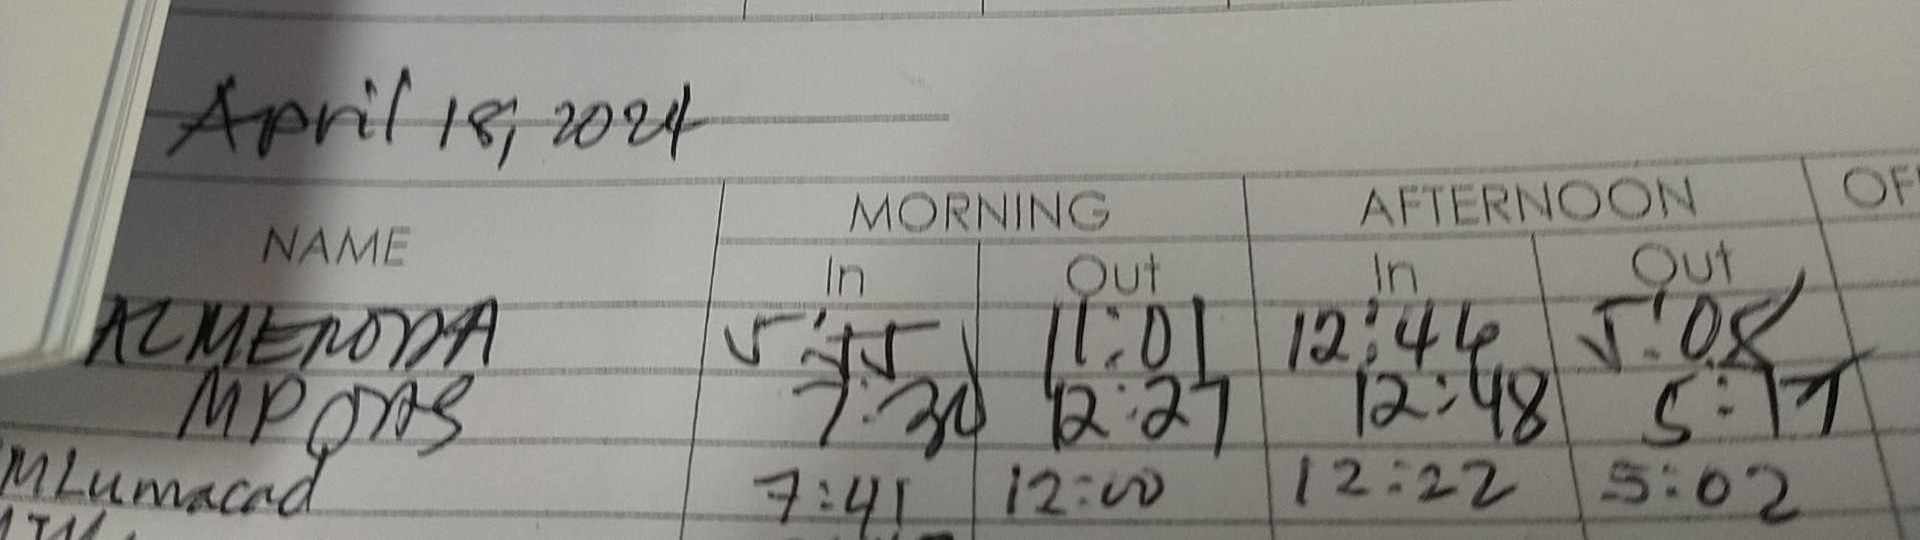 April 18, 2024
NAME MORNING AFTERNOON OF
In Out In Out
ALMENODA 5:55 11:01 12:44 5:08
MP 7:30 12:27 12:48 5:17
MLumacad 7:41 12:00 12:22 5:02